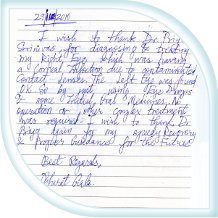 I wish to thank Dr. Priy
Srinivas for diagnosing & treating
my Right Eye which was having
a Corneal Infection due to contaminated
Contact lenses. The left eye was found
OK. So by just using Eye Drops
& some Oral Medicines, No
operation or other complex treatment
was required. I wish to thank Dr.
again for my speedy Recovery
& Proper Guidance for the Future
Best Regards,